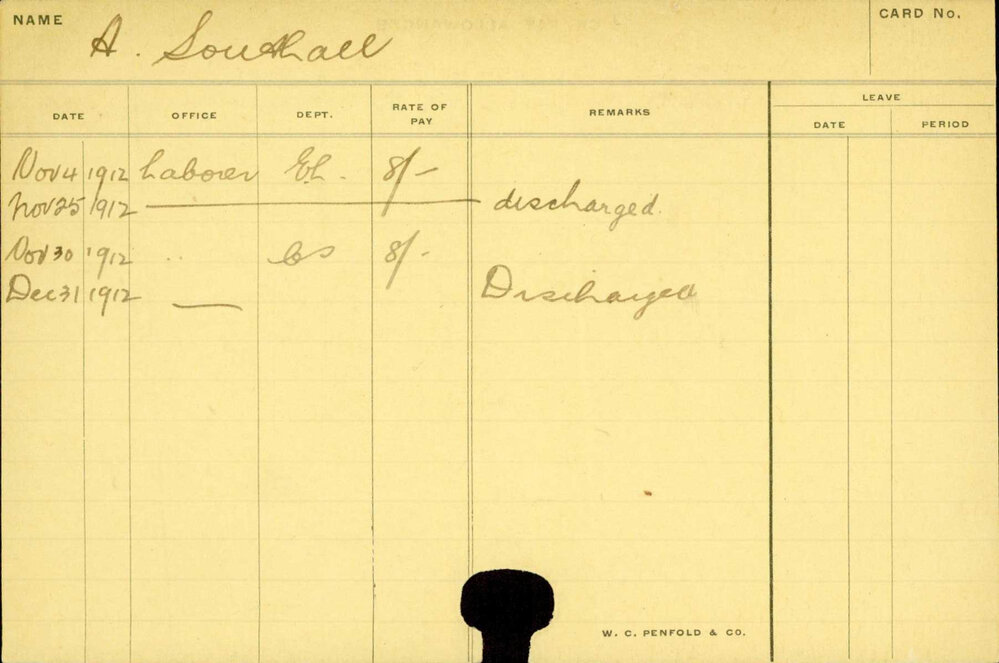 NAME A. Southall CARD No.
LEAVE
DATE OFFICE DEPT. RATE OF PAY REMARKS DATE PERIOD
Nov 4 1912 Laborer 8/-
Nov 25 1912 — discharged.
Nov 30 1912 " 8/-
Dec 31 1912 — Discharged
W. C. PENFOLD & CO.